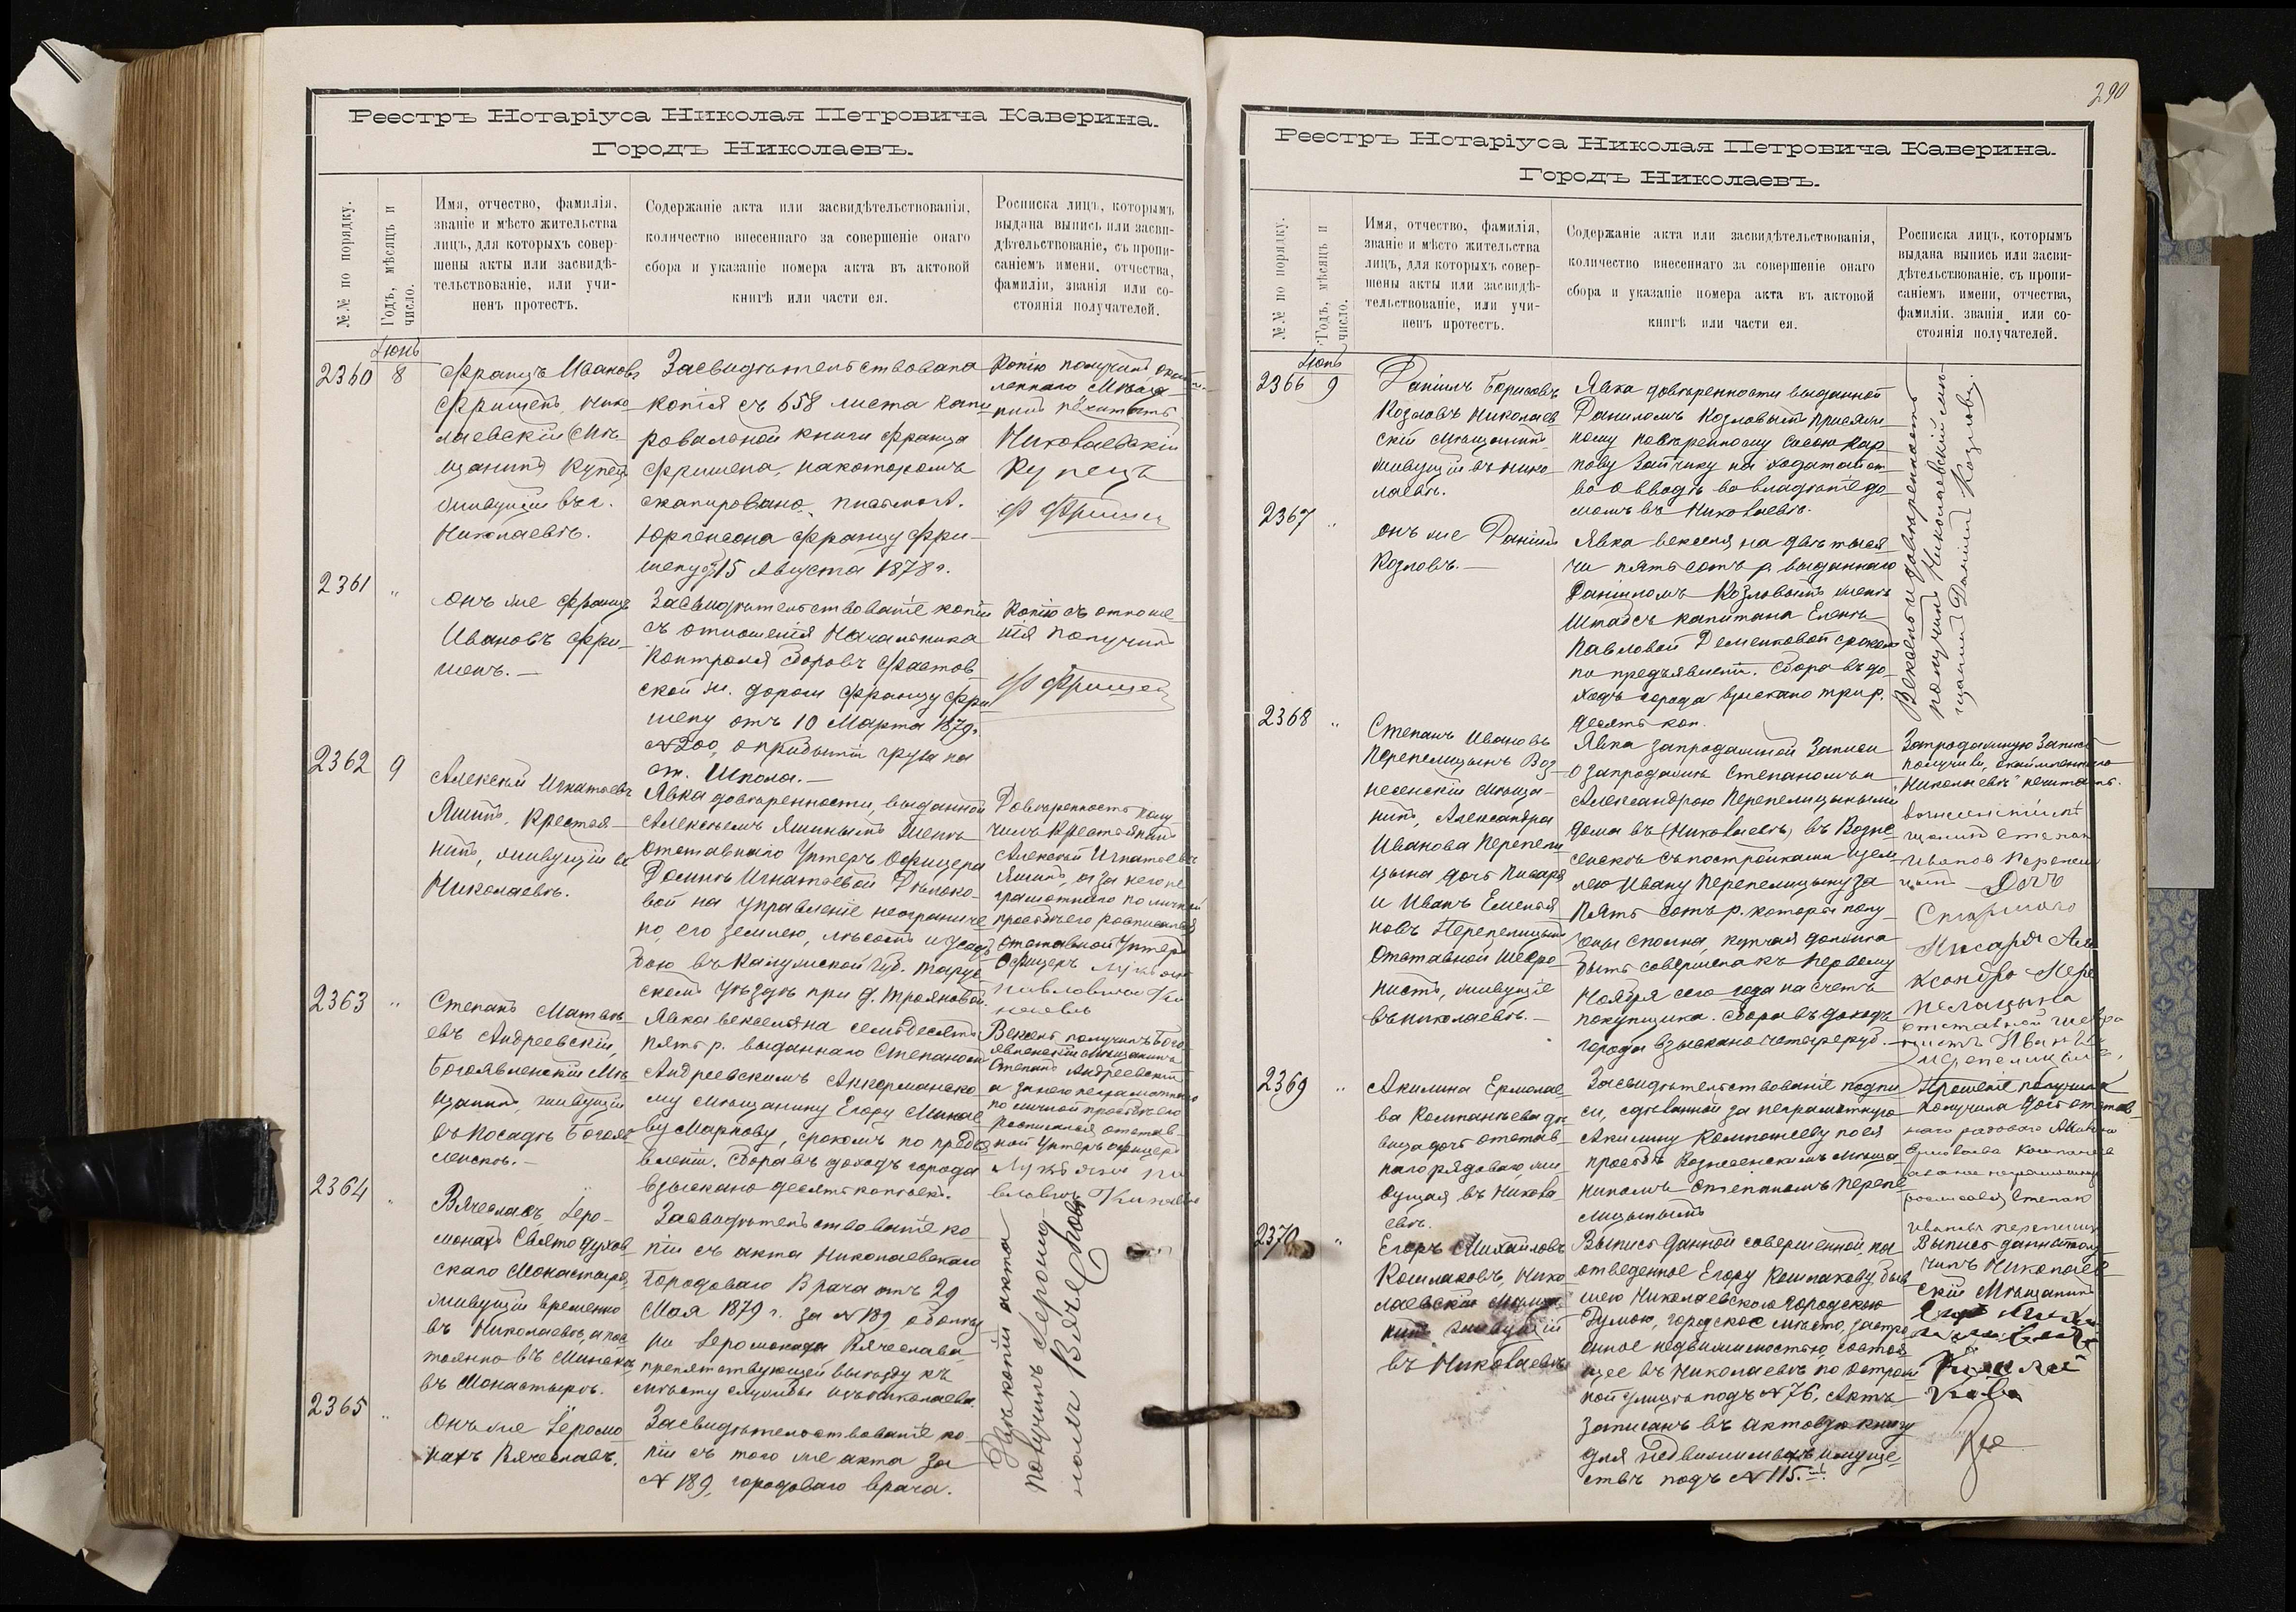 Реестръ Нотаріуса Николая Петровича Каверина.
Городъ Николаевъ.
№№ по порядку.
Годъ, мѣсяцъ и
число.
Имя, отчество, фамилія,
званіе и мѣсто жительства
лицъ, для которыхъ совер-
шены акты или засвидѣ-
тельствованіе, или учи-
ненъ протестъ.
Содержаніе акта или засвидѣтельствованія,
количество внесеннаго за совершеніе онаго
сбора и указаніе номера акта въ актовой
книгѣ или части ея.
Росписка лицъ, которымъ
выдана выпись или засви-
дѣтельствованіе, съ пропи-
саніемъ имени, отчества,
фамиліи, званія или со-
стоянія получателей.
Іюнь
2360
8
Францъ Ивановъ
Фришенъ, Нико-
лаевскій
Купецъ
живущій въ г.
Николаевѣ.
Засвидѣтельствована
копія съ 658 листа копи
ровальной книги Франца
Фришена, на которомъ
скопировано письмо г.
Юргенсона Францу Фри-
шену 15 Августа 1878 г.
Копію получилъ
Николаевскій
Купецъ
Ф Фришен
2361
"
Онъ же Францъ
Ивановъ Фри-
шенъ.—
Засвидѣтельствованіе копіи
съ отношенія Начальника
Контроля Сборовъ Фастов
ской ж. дороги Францу Фри
шену отъ 10 Марта 1879 г.
№ 200, о прибытіи груза на
ст. Шпола.—
Копію съ отноше
нія получилъ
Ф Фришен
2362
9
Алексѣй Игнатьевъ
Яшинъ, Крестья-
нинъ, живущій въ
Николаевѣ.
Явка довѣренности, выданной
Алексѣемъ Яшинымъ женѣ
отставнаго Унтеръ Офицера
Домнѣ Игнатьевой
вой на управленіе неограниче
но, его землею, лѣсомъ и усадь
бою въ Калужской губ. Тарус
скомъ уѣздѣ при д. Трояновой.
Довѣренность полу-
чилъ Крестьянинъ
Алексѣй Игнатьевъ
Яшинъ, а за него не
грамотнаго по личной
просьбѣ его росписался
отставной Унтеръ
Офицеръ
Павловичъ
2363
"
Степанъ Матвѣ-
евъ Андреевскій,
Богоявленскій Мѣ-
щанинъ, живущій
въ посадѣ Богояв
ленскѣ.—
Явка векселя на семьдесятъ
пять р. выданнаго Степаномъ
Андреевскимъ Аккерманско
му мѣщанину Егору Минае
ву Маркову, срокомъ по предъя
вленіи. Сбора въ доходъ города
взыскано десять копѣекъ.
Вексель получилъ Бого
явленскій Мѣщанинъ
Степанъ Андреевскій
а за него неграмотнаго
по личной просьбѣ его
росписался отстав-
ной Унтеръ офицеръ
2364
"
Вячеславъ, Іеро-
монахъ Свято Духов
скаго Монастыря,
живущій временно
въ Николаевѣ, а пос
тоянно въ Минскѣ,
въ Монастырѣ.
Засвидѣтельствованіе ко
піи съ акта Николаевскаго
Городоваго Врача отъ 29
Мая 1879 г. за № 189 о болѣз
ни Іеромонаха Вячеслава
препятствующей выѣзду къ
мѣсту службы изъ Николаева.
2365
"
Онъ же Іеромо
нахъ Вячеславъ.
Засвидѣтельствованіе ко
піи съ того же акта за
№ 189, городоваго врача.
Двѣ копіи акта
получилъ Іеромо-
нахъ Вячеславъ
290
Реестръ Нотаріуса Николая Петровича Каверина.
Городъ Николаевъ.
№№ по порядку.
Годъ, мѣсяцъ и
число.
Имя, отчество, фамилія,
званіе и мѣсто жительства
лицъ, для которыхъ совер-
шены акты или засвидѣ-
тельствованіе, или учи-
ненъ протестъ.
Содержаніе акта или засвидѣтельствованія,
количество внесеннаго за совершеніе онаго
сбора и указаніе номера акта въ актовой
книгѣ или части ея.
Росписка лицъ, которымъ
выдана выпись или засви-
дѣтельствованіе, съ пропи-
саніемъ имени, отчества,
фамиліи, званія или со-
стоянія получателей.
Іюнь
2366
9
Даніилъ Борисовъ
Козловъ Николаев
скій мѣщанинъ
живущій въ Нико
лаевѣ.
Явка довѣренности выданной
Даниломъ Козловымъ Присяж-
ному повѣренному
Зайчику на ходатайст
во о вводѣ во владѣніе до
момъ въ Николаевѣ.
2367
"
Онъ же Даніилъ
Козловъ.—
Явка векселя на двѣ тыся-
чи пятьсотъ р. выданнаго
Даніиломъ Козловымъ женѣ
Штабсъ капитана Еленѣ
Павловой Деменковой срокомъ
по предъявленіи. Сбора въ до
ходъ города взыскано три р.
десять коп.
Вексель и довѣренность
получилъ Николаевскій мѣ-
щанинъ Даніилъ Козловъ.
2368
"
Степанъ Ивановъ
Перепелицынъ Воз-
несенскій мѣща-
нинъ, Александра
Иванова Перепели
цына дочь Писаря
и Иванъ Емелья
новъ Перепелицынъ
Отставной
живущіе
въ Николаевѣ.—
Явка запродажной Записи
о запродажѣ Степаномъ и
Александрою Перепелицыными
дома въ Николаевѣ, въ Возне
сенскѣ съ постройками и зем
лею Ивану Перепелицыну за
пять сотъ р. которые полу-
чены сполна, купчая должна
быть совершена къ первому
Ноября сего года на счетъ
покупщика. Сбора въ доходъ
города взыскано четыре руб.—
Запродажную Запись
получили,
"Николаевъ" нечитать.
Степан
Иванов Перепели
цынъ Дочь
Старшаго
Писаря Але
ксандра Пере
пелицына
отставной
Иванъ
Перепелицынъ,
2369
"
Акилина Ермолае-
ва Компанѣева дѣ
вица дочь отстав-
наго рядоваго жи
вущая въ Никола
евѣ.
Засвидѣтельствованіе подпи
си, сдѣланной за неграмотную
Акилину Компанѣеву по ея
просьбѣ Вознесенскимъ мѣща
ниномъ Степаномъ Перепе
лицынымъ
Прошеніе получила
получила дочь отстав-
наго рядоваго
росписался Степан
Ивановъ
2370
"
Егоръ Михайловъ
Кошлаковъ, Нико
лаевскій Мѣща
нинъ живущій
въ Николаевѣ
Выпись данной совершенной, на
отведенное Егору Кошлакову, быв
шею Николаевскою Городскою
Думою, городское мѣсто, застро
енное недвижимостью, состоя
щее въ Николаевѣ, по
ной улицѣ подъ № 76, Актъ
записанъ въ актовую книгу
для недвижимыхъ имуще
ствъ подъ № 115.
Выпись данной полу-
чилъ Николаев-
скій Мѣщанинъ